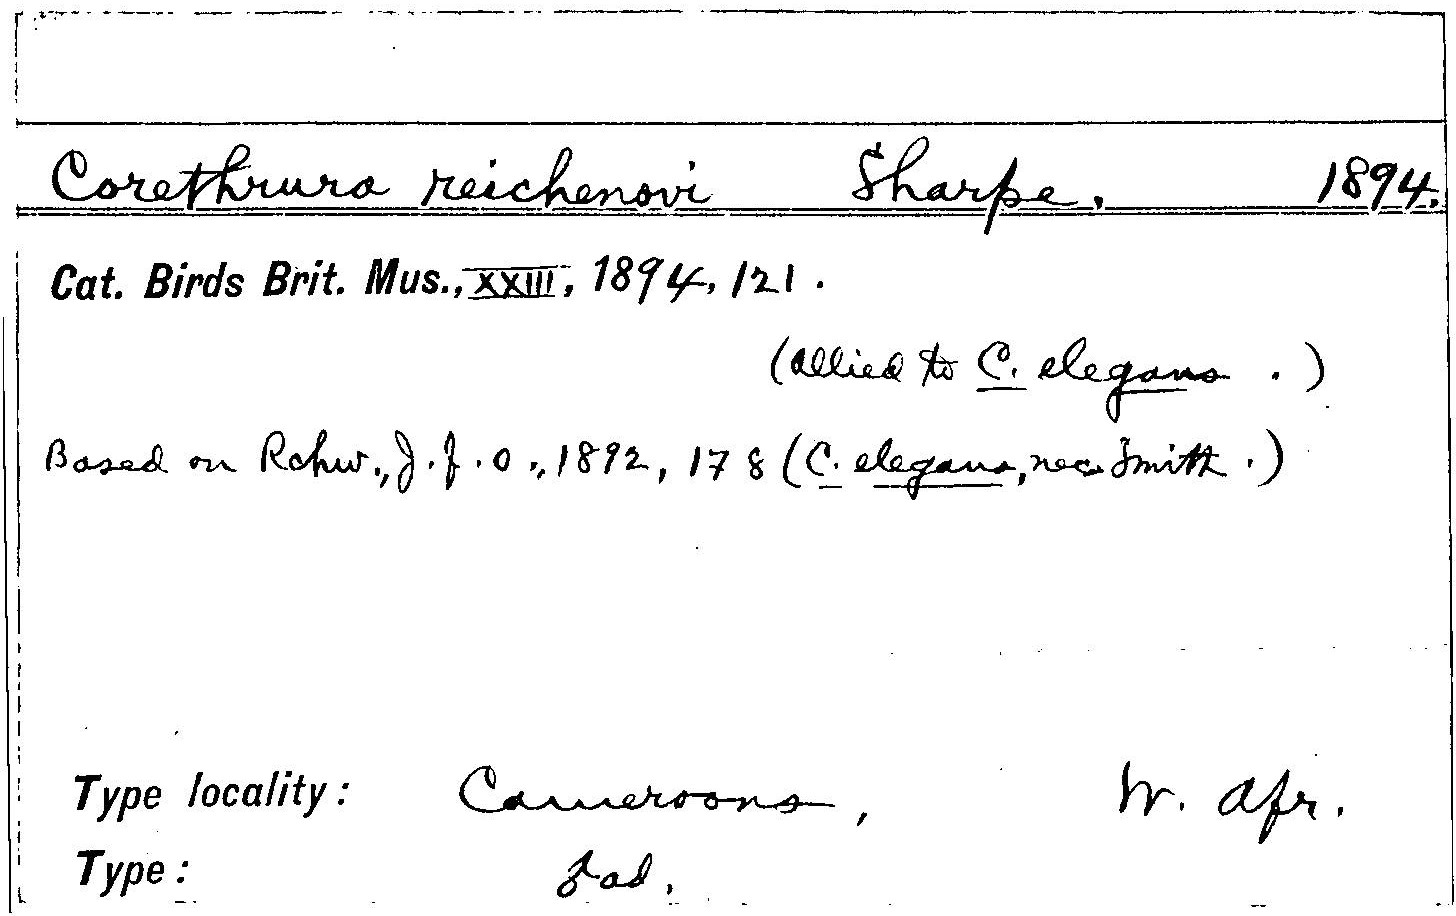 Corethrura reichenovi Sharpe. 1894.
Cat. Birds Brit. Mus., XXIII, 1894, 121.
(allied to C. elegans.)
Based on Rchw., J.f.O., 1892, 178 (C. elegans, nec Smith.)
Type locality: Cameroons, W. Afr.
Type: ad.